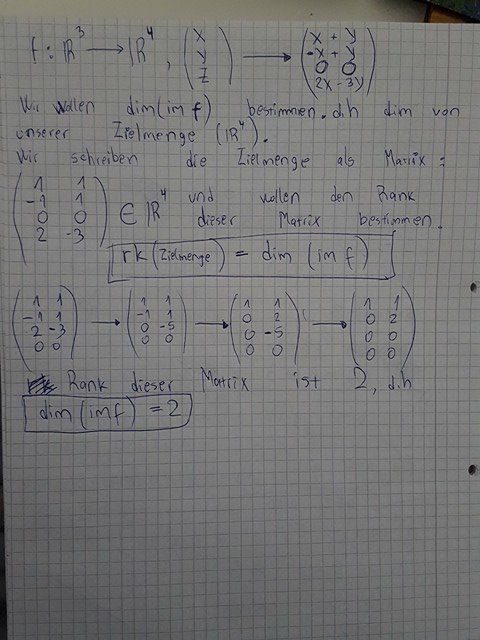 f : ℝ³ → ℝ⁴ , (x y z) → (x + y, -x + y, 0 0, 2x - 3y)
Wir wollen dim(im f) bestimmen. d.h dim von
unserer Zielmenge (ℝ⁴).
Wir schreiben die Zielmenge als Matrix :
(1 1, -1 1, 0 0, 2 -3) ∈ ℝ⁴ und wollen den Rank
dieser Matrix bestimmen.
rk(Zielmenge) = dim (im f)
(1 1, -1 1, 2 -3, 0 0) → (1 1, -1 1, 0 -5, 0 0) → (1 1, 0 2, 0 -5, 0 0) → (1 1, 0 2, 0 0, 0 0)
Rank dieser Matrix ist 2, d.h
dim (im f) = 2